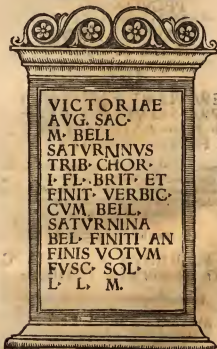 VICTORIAE
AVG. SAC·
M· BELL
SATVRNINVS
TRIB· CHOR·
I· FL· BRIT· ET
FINIT· VERBIC·
CVM BELL,
SATVRNINA
BEL· FINITI AN
FINIS VOTVM
FVSC· SOL·
L· L, M.